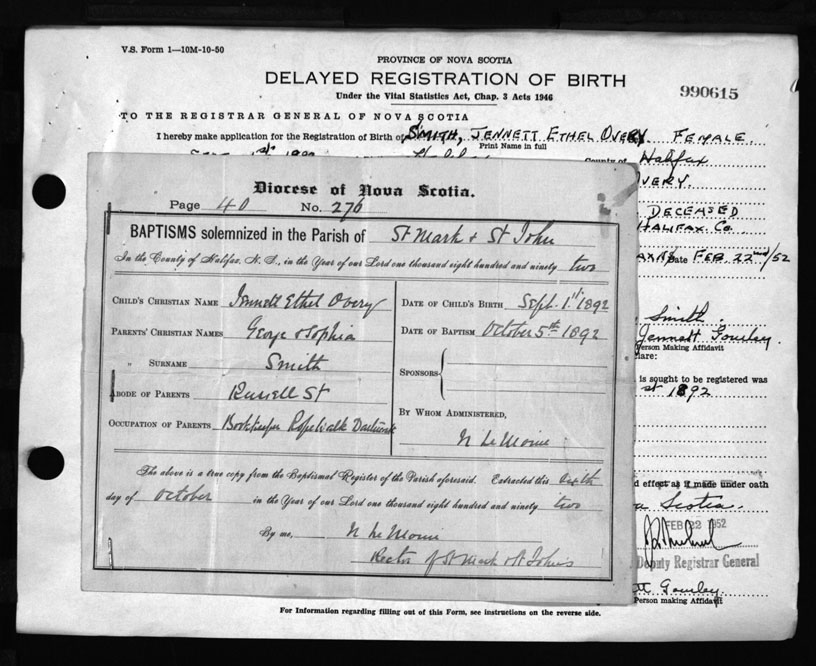 V.S. Form 1—10M-10-50
PROVINCE OF NOVA SCOTIA
DELAYED REGISTRATION OF BIRTH
Under the Vital Statistics Act, Chap. 3 Acts 1946
990615
TO THE REGISTRAR GENERAL OF NOVA SCOTIA
I hereby make application for the Registration of Birth of SMITH, JENNETT ETHEL OVERY. FEMALE.
Print Name in full
County of Halifax
VERY.
Diocese of Nova Scotia.
Page 40 No. 276
DECEASED
HALIFAX Co.
BAPTISMS solemnized in the Parish of St Mark + St John
Date FEB 22nd/52
In the County of Halifax, N. S., in the Year of our Lord one thousand eight hundred and ninety two
CHILD'S CHRISTIAN NAME Jennett Ethel Overy
DATE OF CHILD'S BIRTH Sept. 1st 1892
PARENTS' CHRISTIAN NAMES George & Sophia
DATE OF BAPTISM October 5th 1892
" SURNAME Smith
SPONSORS
ABODE OF PARENTS Russell St
BY WHOM ADMINISTERED,
OCCUPATION OF PARENTS Bookkeeper Ropewalk Dartmouth
N LeMoine
Smith.
Jennett Gourley
Person Making Affidavit
lare:
is sought to be registered was
st 1892
The above is a true copy from the Baptismal Register of the Parish aforesaid. Extracted this sixth
day of October in the Year of our Lord one thousand eight hundred and ninety two
By me, N LeMoine
Rector of St Mark & St John's
d effect as if made under oath
a Scotia.
FEB 22 1952
Deputy Registrar General
tt Gourley
Person making Affidavit
For Information regarding filling out of this Form, see instructions on the reverse side.